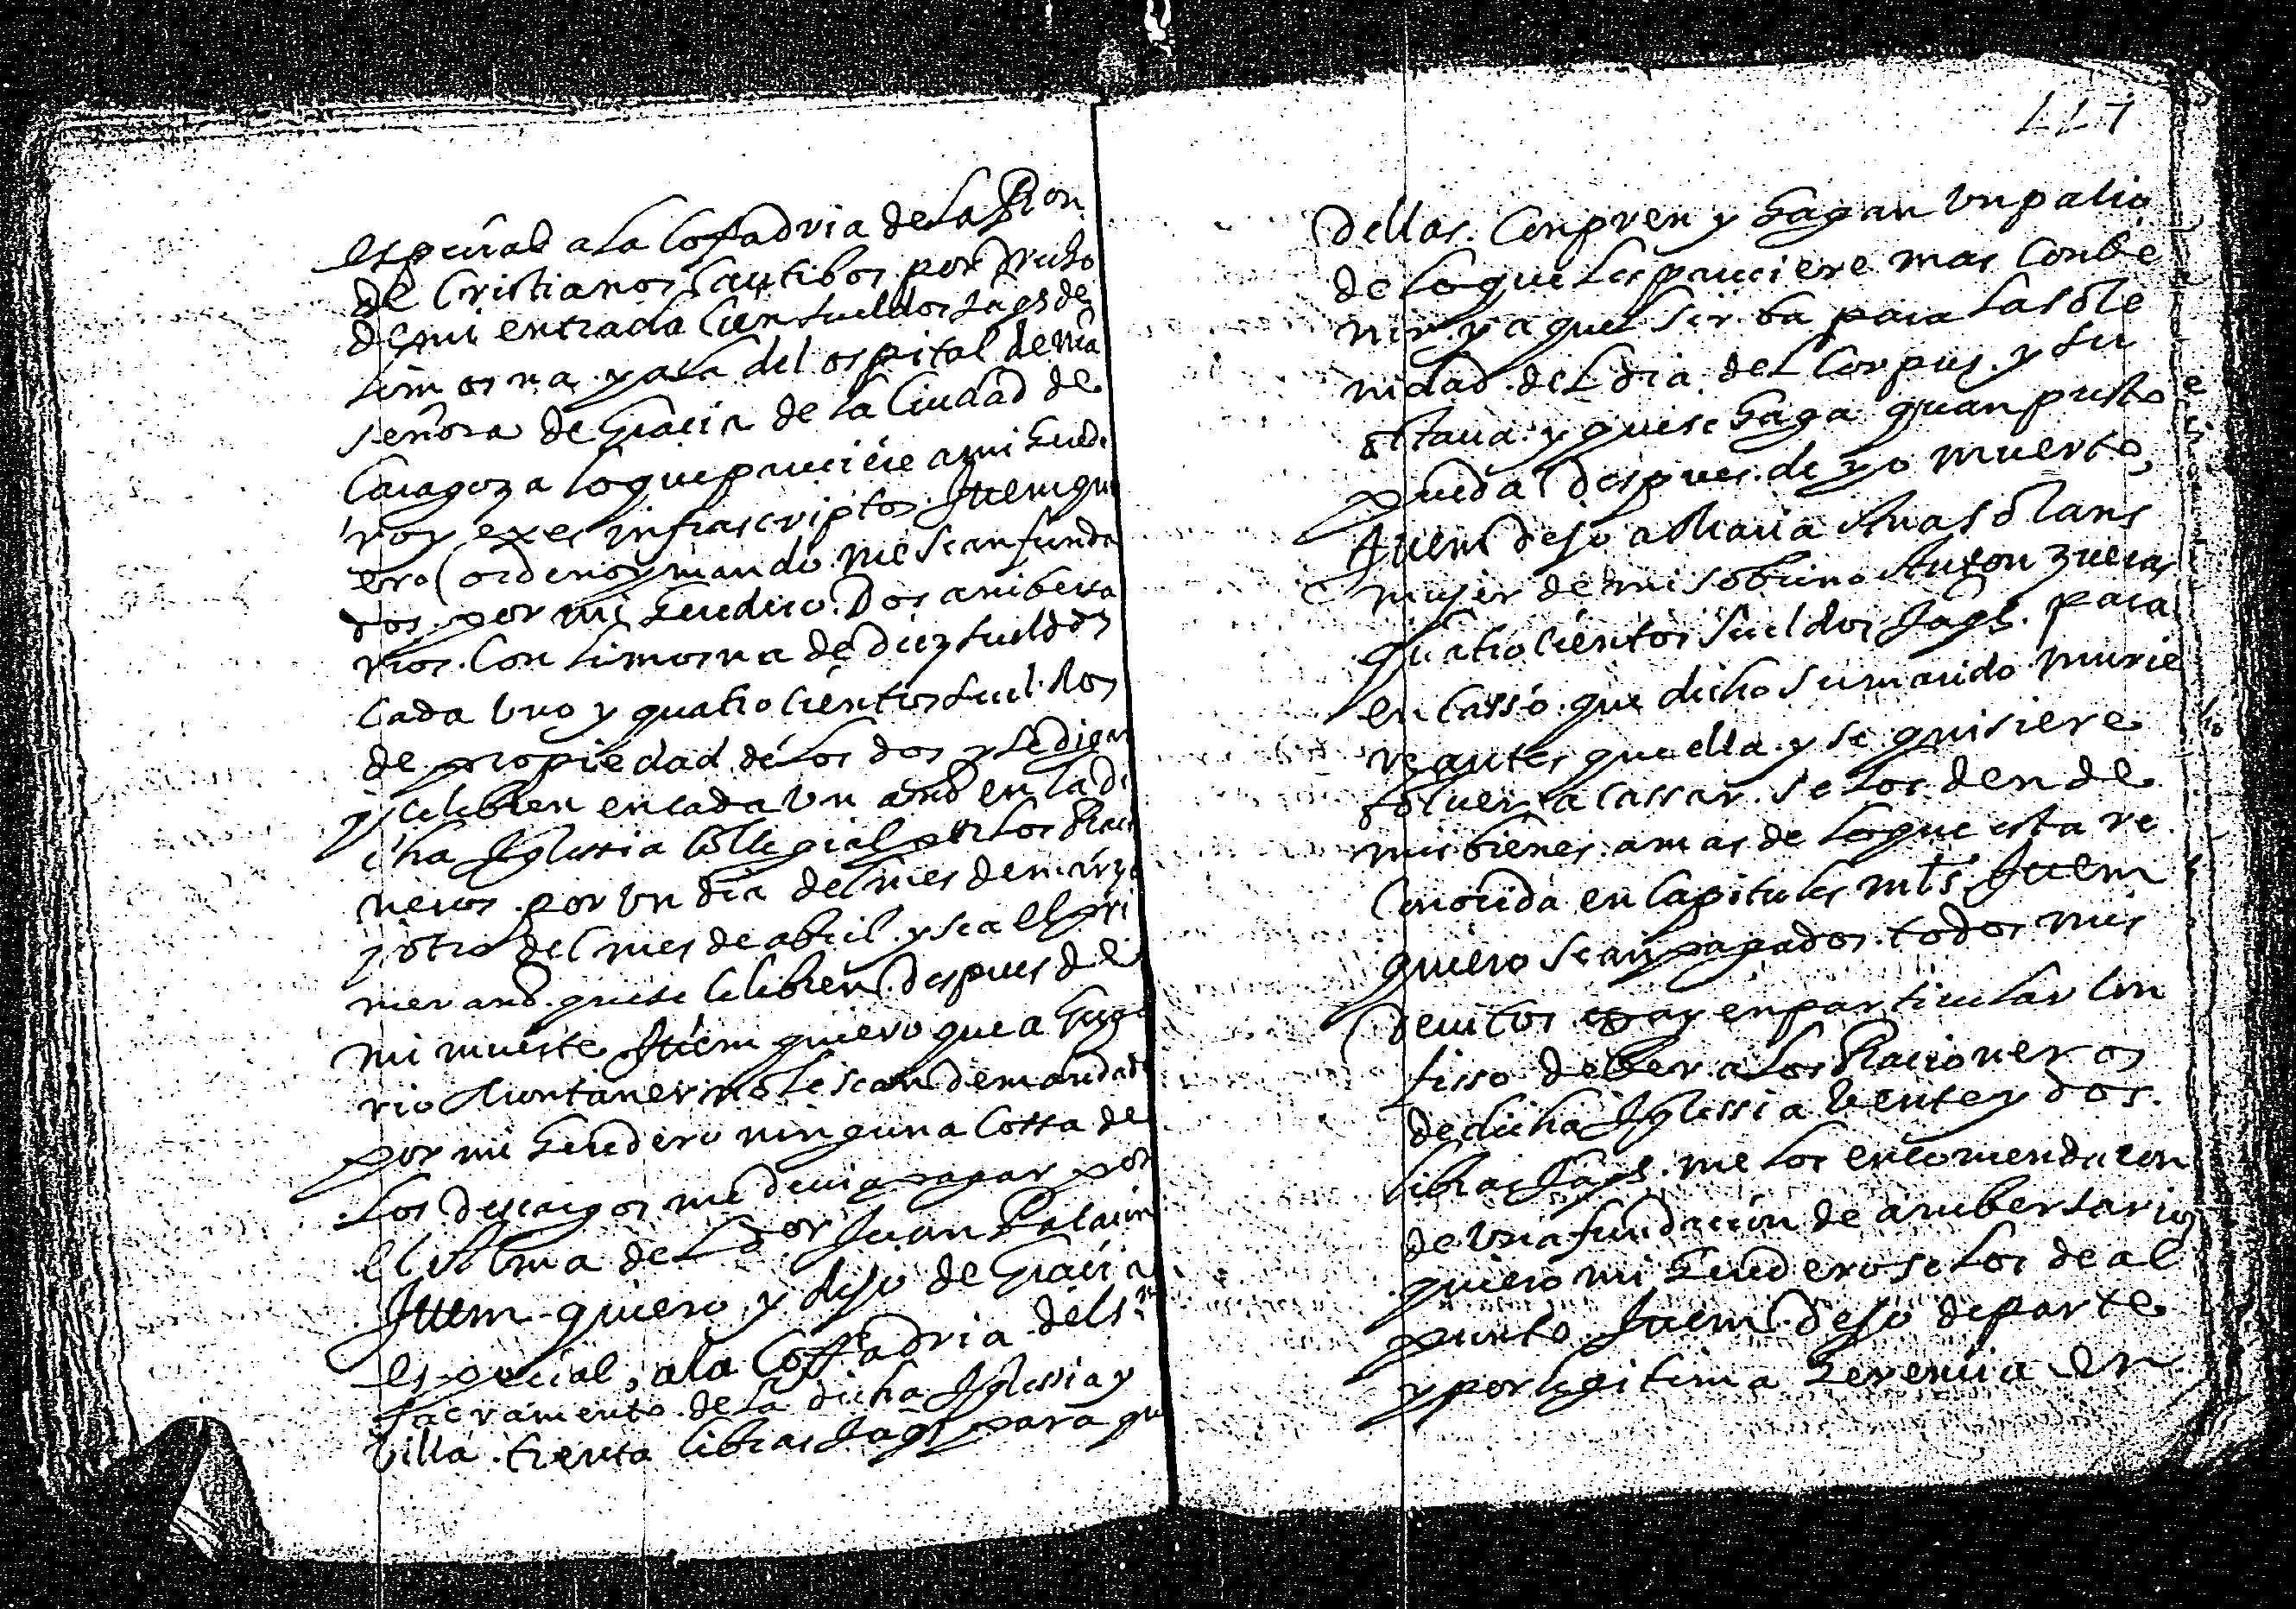 espeçial a la Coffadria de la Ron
de Cristianos Cautibos por drecho
de mi entrada Cien sueldos Jaqs de
limosna y a la del ospital de nra
señora de Gracia de la Ciudad de
Caragoza lo que pareciere a mi hered
ro y exes infrascriptos Ittem qui
ero ordeno y mando me sean funda
dos por mi heredero Dos anibersa
rios Con limosna de diez sueldos
Cada Uno y quatrocientos sueldos
de propiedad de los dos y se digan
y celebren en cada Un año en la di
cha Iglessia Collegial por los Racio
neros por Un dia del mes de março
y otro del mes de abril y sea el pri
mer año que se celebren despues de
mi muerte Ittem quiero que a
rio Muntaner no le sean demandad
por mi heredero ninguna Cossa de
los descargos me devia pagar por
el Alma de Juan Palacin
Ittem quiero y dejo de Gracia
especial, a la Coffadria del Sm
sacramento de la dicha Iglessia y
Villa trenta libras Jaqs para que
117
Dellas Conpren y hagan Un palio
de lo que les pareciere mas Conbe
nir y aquel sirba para la sole
nidad del dia del Corpus y su
octava y que se haga quan presto
pueda despues de yo muerto,
Ittem dejo a Maria Anasolans
mujer de mi sobrino Anton zueras
quatrocientos sueldos Jaqs. para
en Casso que dicho su marido murie
re antes que ella y se quisiere
bolver a cassar se los den de
mis bienes a mas de lo que esta re
Conocida en Capitules mls Ittem
quiero sean pagados todos mis
devitos y en particular Con
fiesso deber a los Racioneros
de dicha Iglessia Vente y dos
libras Jaqs. me los encomendaron
de Una fundacion de anibersarios
quiero mi heredero se los de al
punto Ittem dejo de parte
y por legitima herencia de